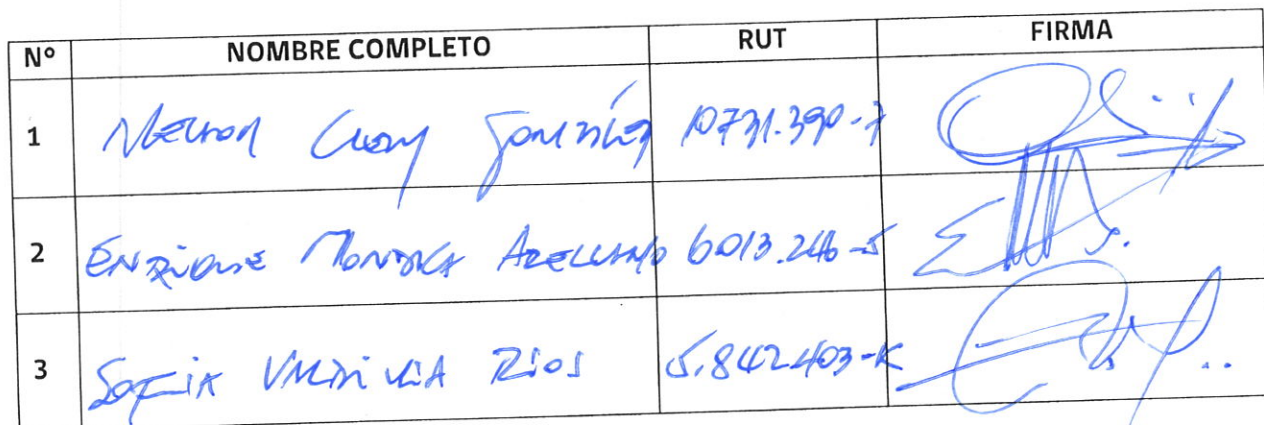 Nº NOMBRE COMPLETO RUT FIRMA
1 González 10.731.390-7
2 ENRIQUE Arellano 6.013.246-5
3 Sofía VALDIVIA Ríos 5.842.403-K